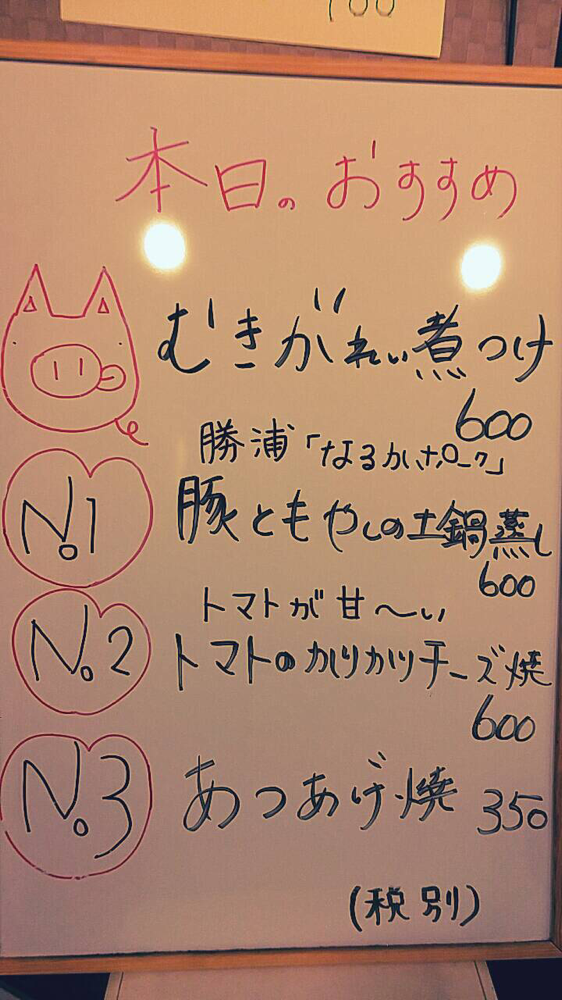 700
本日のおすすめ
むきがれい煮つけ
600
勝浦「なるかポーク」
No.1 豚ともやしの土鍋蒸し
600
トマトが甘〜い
No.2 トマトのカリカリチーズ焼
600
No.3 あつあげ焼 350
(税別)